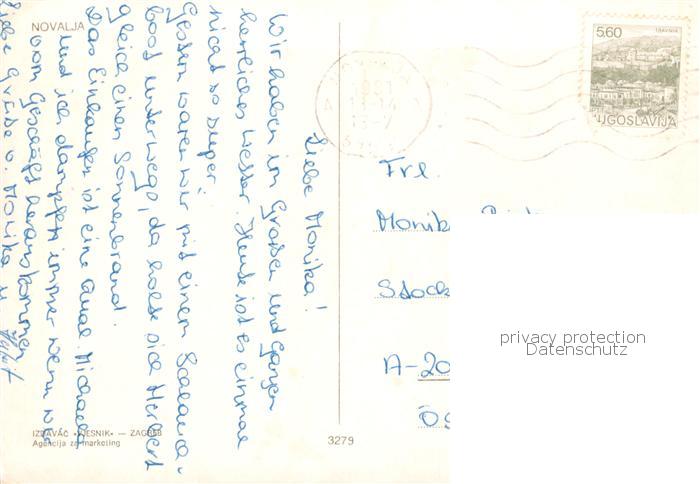 NOVALJA
Liebe Monika!
Wir haben im Großen und Ganzen
herrliches Wetter. Heute ist es einmal
nicht so super.
Gestern waren wir mit einem
boot unterwegs, da holte sich Herbert
gleich einen Sonnenbrand.
Das Einkaufen ist eine Qual. Michaela
und ich dampfen immer wenn wir
vom Geschäft herauskommen
Liebe Grüße v. Monika u.
IZDAVAČ »VJESNIK« — ZAGREB
Agencija za marketing
3279
1981
5.60
TRAVNIK
JUGOSLAVIJA
Frl.
Monik
Stock
A-20
privacy protection
Datenschutz